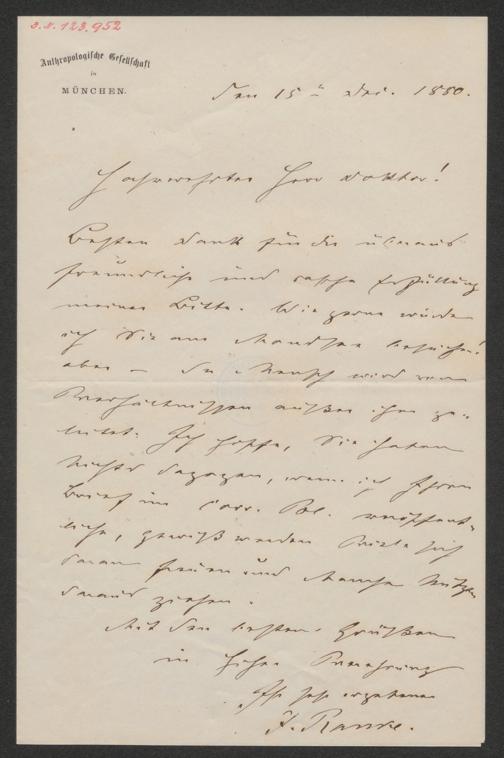 3.N.123.952
Anthropologische Gesellschaft
in
MÜNCHEN.
Den 15ᵗ Dez. 1880.
Hochverehrter Herr Doktor!
Besten Dank für die überaus
freundliche und rasche Erfüllung
meiner Bitte. Wie gerne würde
ich Sie am Mondsee besuchen!
aber – der Mensch wird von
Verhältnissen außer ihm ge-
leitet. Ich hoffe, Sie haben
Nichts dagegen, wenn ich Ihren
Brief im Corr. Bl. veröffent-
liche, gewiß werden Viele sich
daran freuen und Manche Nutzen
daraus ziehen.
Mit den besten Grüßen
in hoher Verehrung
Ihr sehr ergebener
J. Ranke.